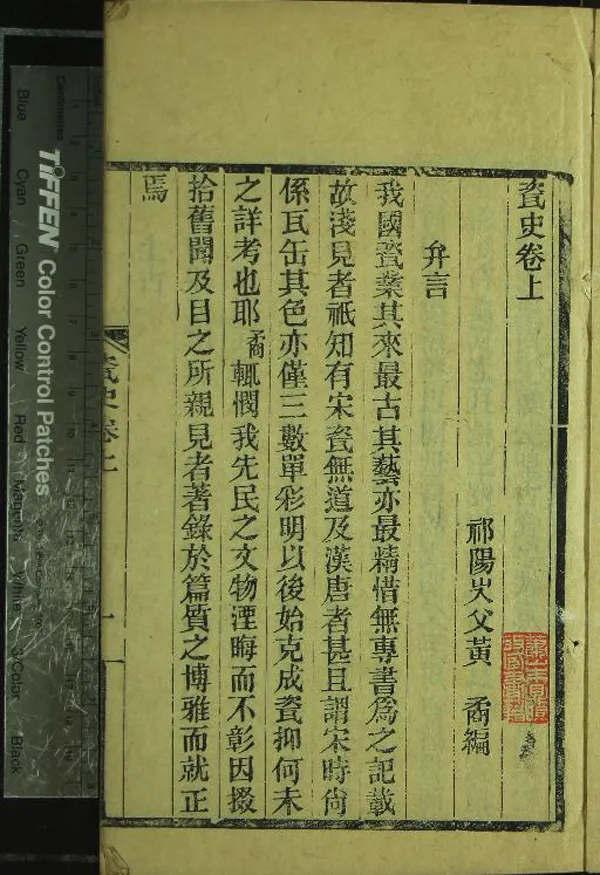 瓷史卷上
祁陽㕚父黃 矞編
弁言
我國瓷業其來最古其藝亦最精惜無專書爲之記載
故淺見者祇知有宋瓷無道及漢唐者甚且謂宋時尙
係瓦缶其色亦僅三數單彩明以後始克成瓷抑何未
之詳考也耶矞輒憫我先民之文物湮晦而不彰因掇
拾舊聞及目之所親見者著錄於篇質之博雅而就正
焉
瓷史卷上
一
Centimetres
TIFFEN Color Control Patches
Blue
Cyan
Green
Yellow
Red
Magenta
White
3/Color
Black